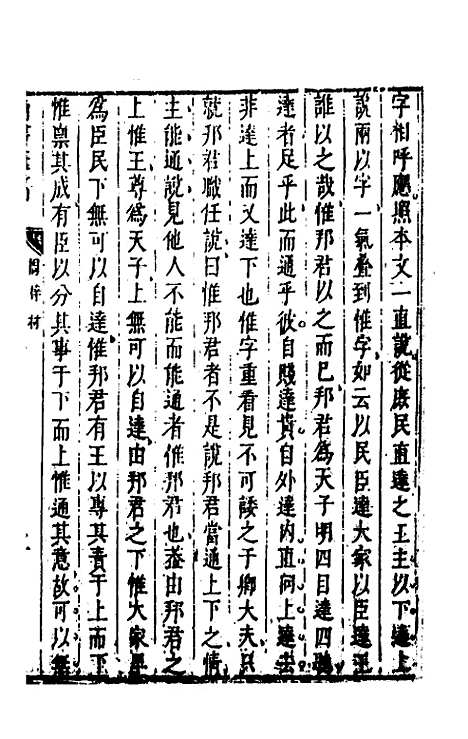 字相呼應照本文一直說從庶民直達之王主以下達上
說兩以字一氣疊到惟字如云以民臣達大家以臣達王
誰以之哉惟邦君以之而已邦君爲天子明四目達四聰
達者足乎此而通乎彼自賤達貴自外達內直向上達去
非達上而又達下也惟字重看見不可諉之于卿大夫只
就邦君職任說曰惟邦君者不是說邦君當通上下之情
主能通說見他人不能而能通者惟邦君也葢由邦君之
上惟王尊爲天子上無可以自達由邦君之下惟大家
爲臣民下無可以自達惟邦君有王以專其責于上而下
惟稟其成有臣以分其事于下而上惟通其意故可以無
梓材